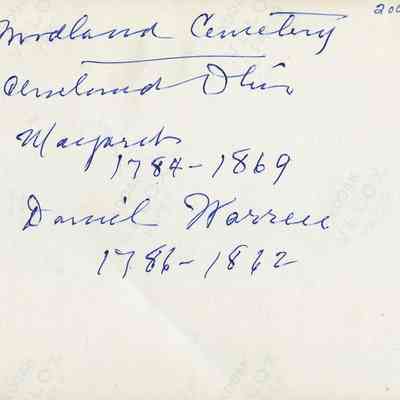 200
Woodland Cemetery
Cleveland Ohio
Margaret
1784-1869
Daniel Warren
1786-1862